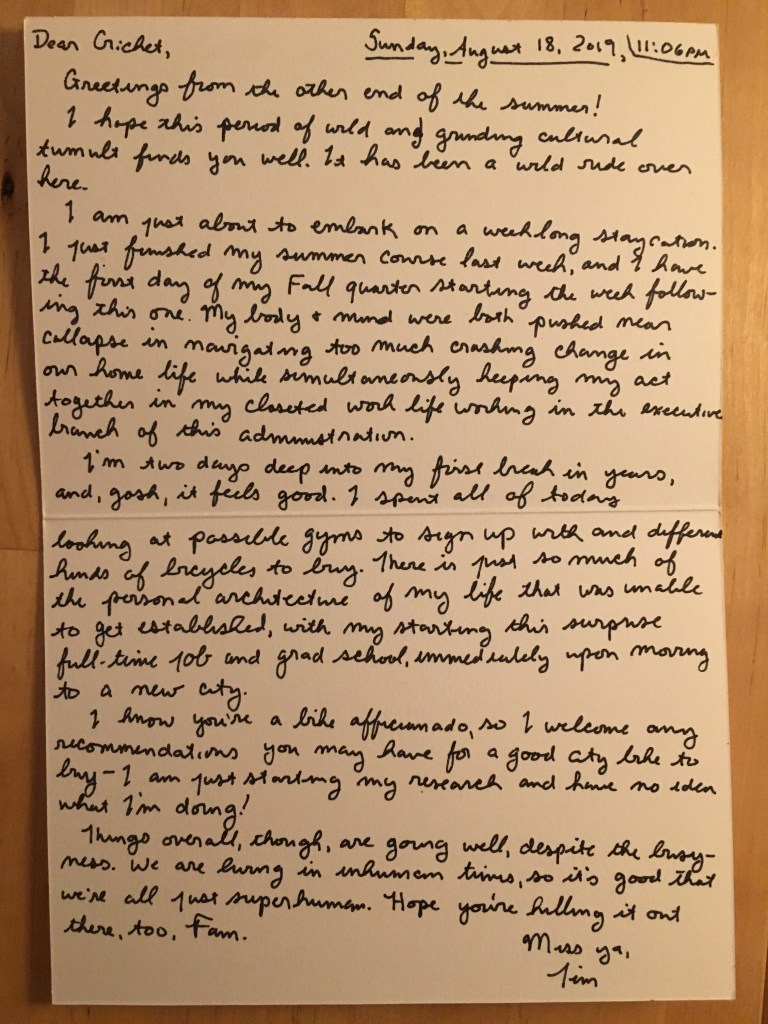 Dear Cricket,
Sunday, August 18, 2019, 11:06PM
Greetings from the other end of the summer!
I hope this period of wild and grinding cultural
tumult finds you well. It has been a wild ride over
here.
I am just about to embark on a weeklong staycation.
I just finished my summer course last week, and I have
the first day of my Fall quarter starting the week follow-
ing this one. My body & mind were both pushed near
collapse in navigating too much crashing change in
our home life while simultaneously keeping my act
together in my closeted work life working in the executive
branch of this administration.
I'm two days deep into my first break in years,
and, gosh, it feels good. I spent all of today
looking at possible gyms to sign up with and different
kinds of bicycles to buy. There is just so much of
the personal architecture of my life that was unable
to get established, with my starting this surprise
full-time job and grad school, immediately upon moving
to a new city.
I know you're a bike afficionado, so I welcome any
recommendations you may have for a good city bike to
buy – I am just starting my research and have no idea
what I'm doing!
Things overall, though, are going well, despite the busy-
ness. We are living in inhuman times, so it's good that
we're all just superhuman. Hope you're killing it out
there, too, Fam.
Miss ya,
Tim